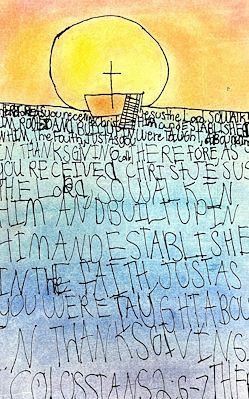 Therefore as you received Christ Jesus the Lord, so walk
in Him, rooted and built up in Him and established
in the faith, just as you were taught, abounding
in thanksgiving. Col THEREFORE AS
YOU RECEIVED CHRIST JESUS
THE LORD, SO WALK IN
HIM AND BUILT UP IN
HIM AND ESTABLISHE
IN THE FAITH, JUST AS
YOU WERE TAUGHT ABOU
IN THANKSGIVING
COLOSSIANS 2:6-7 THE